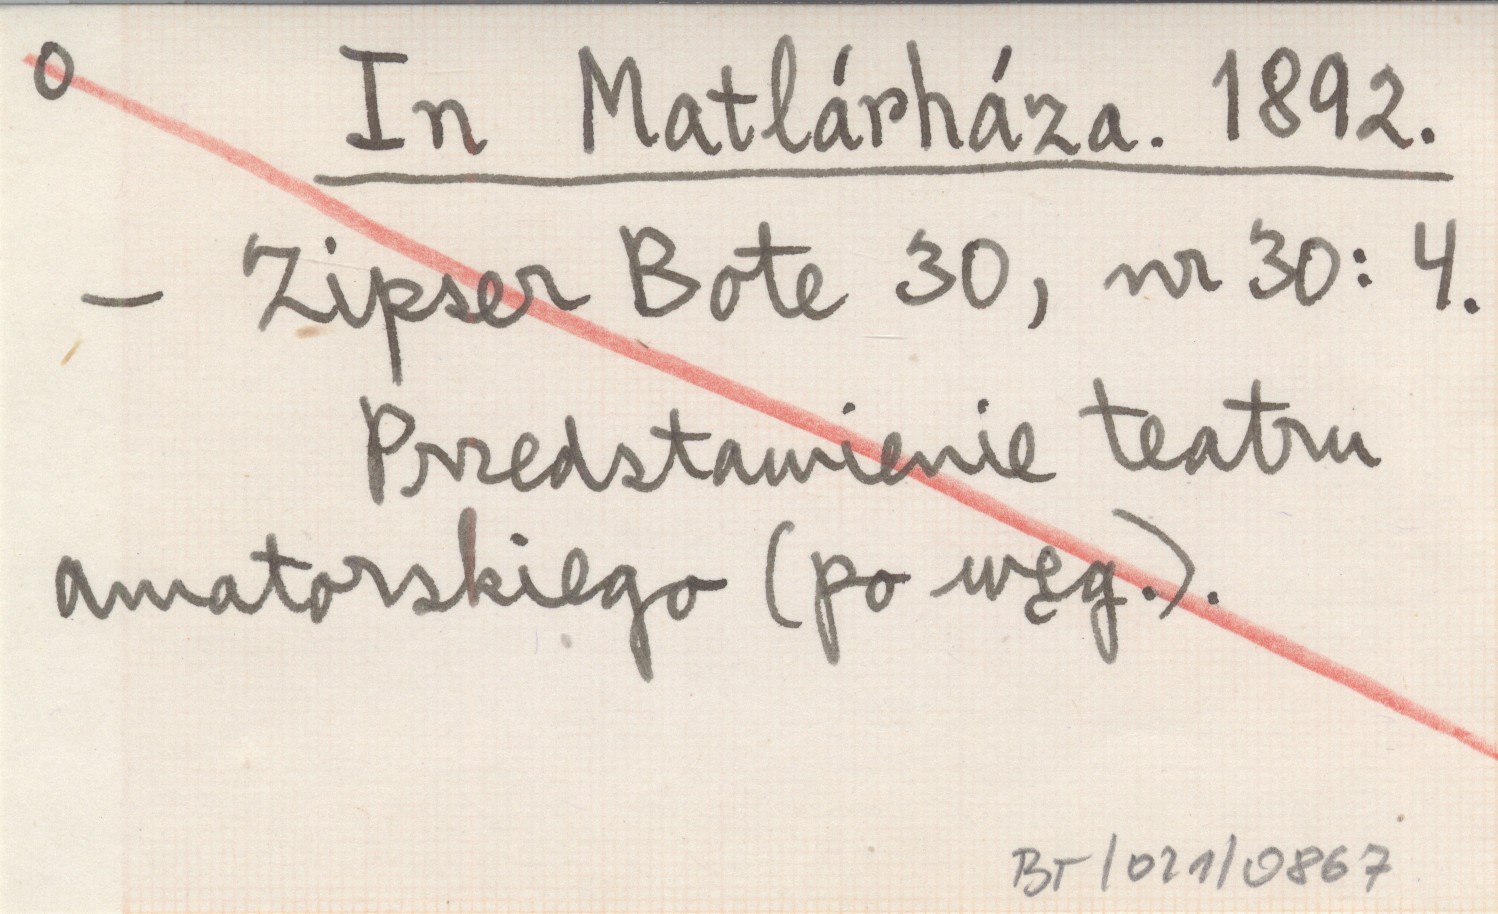 0 In Matlárháza. 1892.
- Zipser Bote 30, nr 30: 4.
Przedstawienie teatru
amatorskiego (po węg.).
BT/021/0867